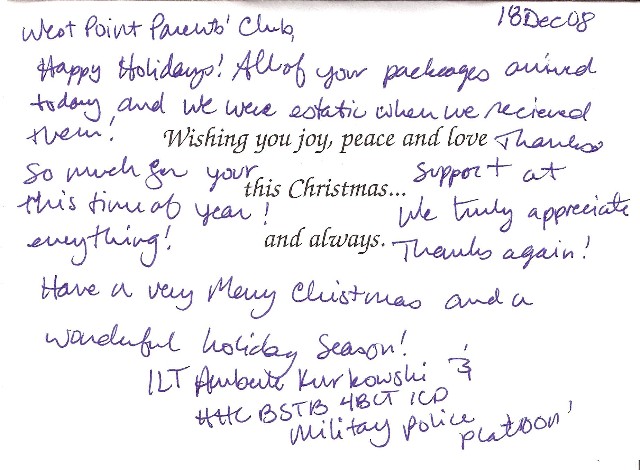 18Dec08
West Point Parents' Club,
Happy Holidays! All of your packages arrived
today and we were estatic when we recieved
them! Wishing you joy, peace and love Thanks
So much for your this Christmas... support at
this time of year! We truly appreciate
everything! and always. Thanks again!
Have a very Merry Christmas and a
wonderful holiday Season!
1LT Kurkowski &
HHC BSTB 4BCT 1CD
Military Police platoon!